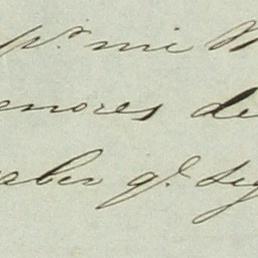 pr. mi
enores de
aber ql. seg